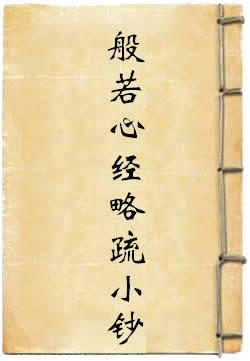 般若心经略疏小钞